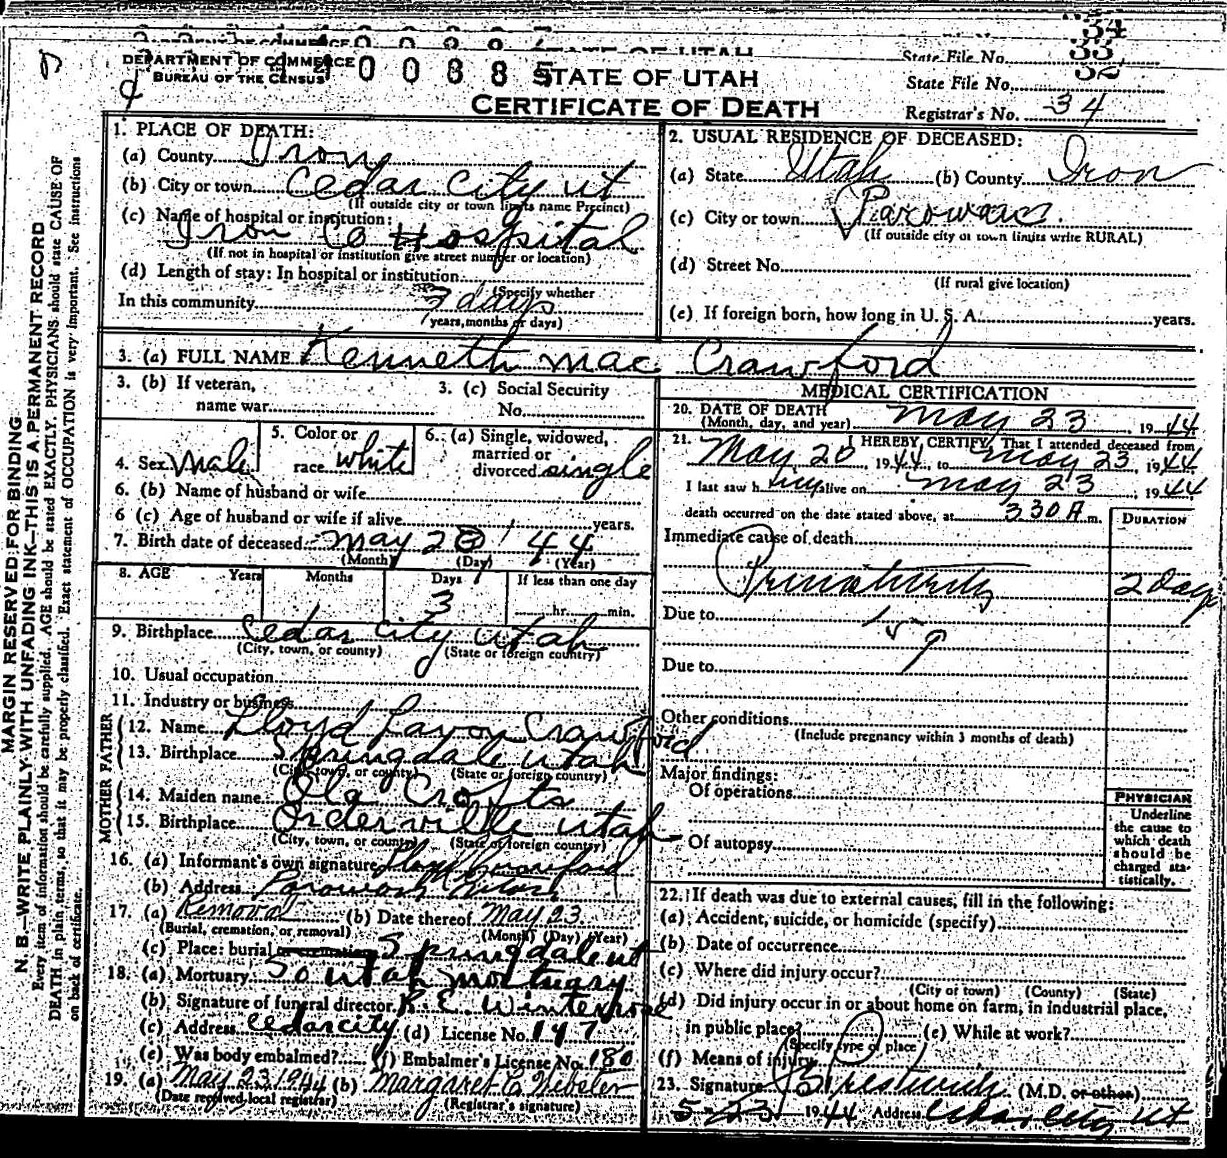 34
33
32
DEPARTMENT OF COMMERCE
BUREAU OF THE CENSUS
STATE OF UTAH
CERTIFICATE OF DEATH
State File No.
State File No.
Registrar's No. 34
MARGIN RESERVED FOR BINDING
N. B.—WRITE PLAINLY WITH UNFADING INK—THIS IS A PERMANENT RECORD
Every item of information should be carefully supplied. AGE should be stated EXACTLY. PHYSICIANS should state CAUSE OF
DEATH in plain terms, so that it may be properly classified. Exact statement of OCCUPATION is very important. See instructions
on back of certificate.
1. PLACE OF DEATH:
(a) County Iron
(b) City or town Cedar City Ut
(If outside city or town limits name Precinct)
(c) Name of hospital or institution:
Iron Co Hospital
(If not in hospital or institution give street number or location)
(d) Length of stay: In hospital or institution
(Specify whether
In this community days
years, months or days)
2. USUAL RESIDENCE OF DECEASED:
(a) State Utah (b) County Iron
(c) City or town Parowan
(If outside city or town limits write RURAL)
(d) Street No.
(If rural give location)
(e) If foreign born, how long in U. S. A. years.
3. (a) FULL NAME Kenneth Mac Crawford
3. (b) If veteran, name war
3. (c) Social Security No.
4. Sex Male
5. Color or race white
6. (a) Single, widowed, married or divorced single
6. (b) Name of husband or wife
6 (c) Age of husband or wife if alive years.
7. Birth date of deceased May 20 44
(Month) (Day) (Year)
8. AGE Years Months Days If less than one day
3 hr. min.
9. Birthplace Cedar City Utah
(City, town, or county) (State or foreign country)
10. Usual occupation
11. Industry or business
FATHER
12. Name Lloyd Lavon Crawford
13. Birthplace Springdale Utah
(City, town, or county) (State or foreign country)
MOTHER
14. Maiden name Ola Crofts
15. Birthplace Orderville Utah
(City, town, or county) (State or foreign country)
16. (a) Informant's own signature Lloyd Crawford
(b) Address Parowan Utah
17. (a) Removal (b) Date thereof May 23
(Burial, cremation, or removal) (Month) (Day) (Year)
(c) Place: burial or cremation Springdale ut
18. (a) Mortuary So Utah Mortuary
(b) Signature of funeral director R. E. Winterrose
(c) Address Cedar City (d) License No. 147
(e) Was body embalmed? (f) Embalmer's License No. 180
19. (a) May 23 1944 (b) Margaret C Webster
(Date received local registrar) (Registrar's signature)
MEDICAL CERTIFICATION
20. DATE OF DEATH May 23, 1944
(Month, day, and year)
21. I HEREBY CERTIFY, That I attended deceased from
May 20 1944, to May 23 1944
I last saw h im alive on May 23, 1944
death occurred on the date stated above, at 330 A m.
DURATION
Immediate cause of death
Prematurity 2 days
Due to
159
Due to
Other conditions
(Include pregnancy within 3 months of death)
Major findings:
Of operations
Of autopsy
PHYSICIAN
Underline
the cause to
which death
should be
charged sta-
tistically.
22. If death was due to external causes, fill in the following:
(a) Accident, suicide, or homicide (specify)
(b) Date of occurrence
(c) Where did injury occur?
(City of town) (County) (State)
(d) Did injury occur in or about home on farm, in industrial place,
in public place? (e) While at work?
(Specify type of place)
(f) Means of injury
23. Signature (M.D. or other)
5-23 1944 Address Cedar City Ut